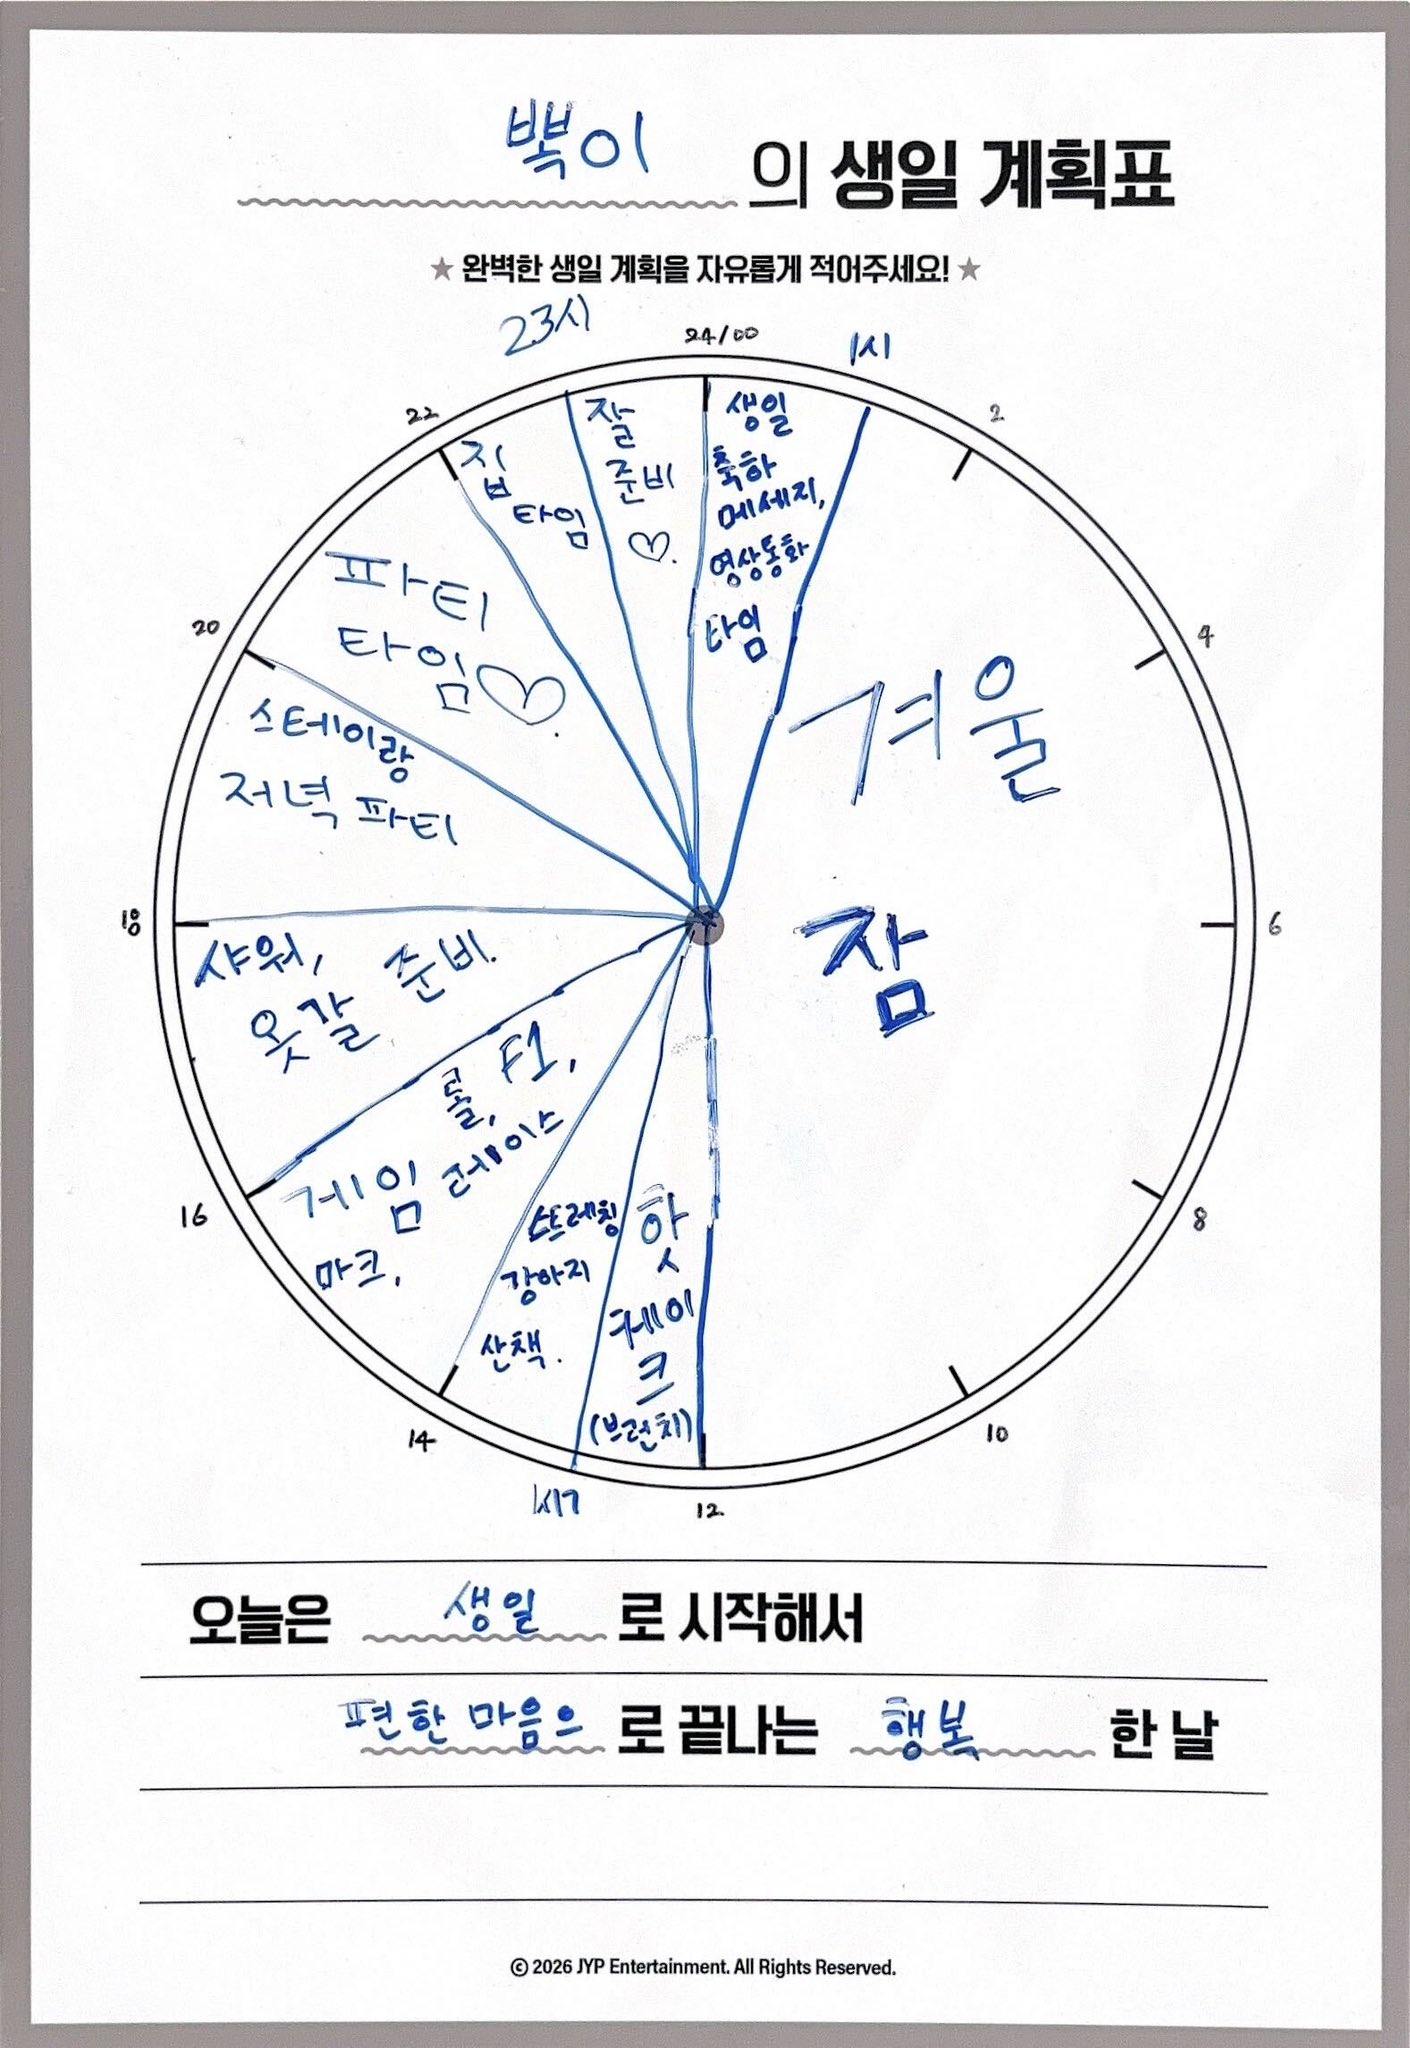 뽁이 의 생일 계획표
★ 완벽한 생일 계획을 자유롭게 적어주세요! ★
23시
24/00
1시
2
4
6
8
10
12
1시
14
16
18
20
22
생일
축하
메세지,
영상통화
타임
겨울
잠
핫
케이
크
(브런치)
스트레칭
강아지
산책.
롤, F1,
게임 레이스
마크,
샤워,
옷갈 준비.
스테이랑
저녁 파티
파티
타임♡.
집
타임
잘
준비
♡.
오늘은 생일 로 시작해서
편한 마음으 로 끝나는 행복 한 날
© 2026 JYP Entertainment. All Rights Reserved.